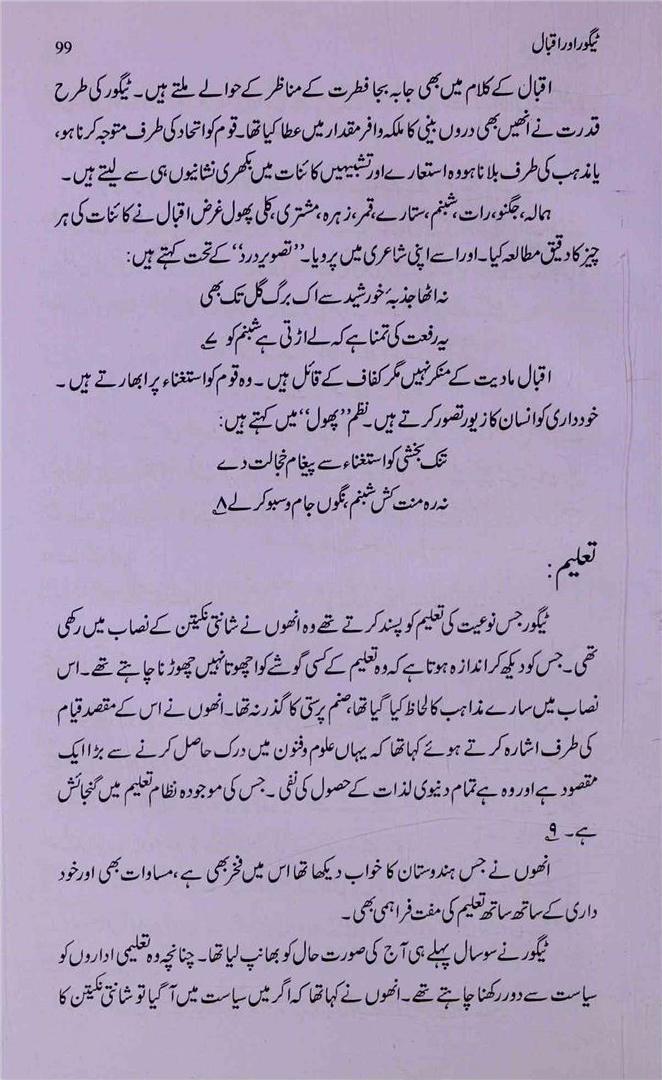 ٹیگور اور اقبال
99
اقبال کے کلام میں بھی جا بہ بجا فطرت کے مناظر کے حوالے ملتے ہیں۔ ٹیگور کی طرح
قدرت نے انھیں بھی دروں بینی کا ملکہ وافر مقدار میں عطا کیا تھا۔ قوم کو اتحاد کی طرف متوجہ کرنا ہو،
یا مذہب کی طرف بلانا ہو وہ استعارے اور تشبیہیں کائنات میں بکھری نشانیوں ہی سے لیتے ہیں۔
ہمالہ، جگنو، رات، شبنم، ستارے، قمر، زہرہ، مشتری، کلی پھول غرض اقبال نے کائنات کی ہر
چیز کا دقیق مطالعہ کیا۔ اور اسے اپنی شاعری میں پرویا۔ ’’تصویر درد‘‘ کے تحت کہتے ہیں:
نہ اٹھا جذبۂ خورشید سے اک برگ گل تک بھی
یہ رفعت کی تمنا ہے کہ لے اڑتی ہے شبنم کو ۷؎
اقبال مادیت کے منکر نہیں مگر کفاف کے قائل ہیں۔ وہ قوم کو استغناء پر ابھارتے ہیں۔
خودداری کو انسان کا زیور تصور کرتے ہیں۔ نظم ’’پھول‘‘ میں کہتے ہیں:
تنک بخشی کو استغناء سے پیغام خجالت دے
نہ رہ منت کش شبنم، نگوں جام و سبو کر لے ۸؎
تعلیم:
ٹیگور جس نوعیت کی تعلیم کو پسند کرتے تھے وہ انھوں نے شانتی نکیتن کے نصاب میں رکھی
تھی۔ جس کو دیکھ کر اندازہ ہوتا ہے کہ وہ تعلیم کے کسی گوشے کو اچھوتا نہیں چھوڑنا چاہتے تھے۔ اس
نصاب میں سارے مذاہب کا لحاظ کیا گیا تھا، صنم پرستی کا گذر نہ تھا۔ انھوں نے اس کے مقصد قیام
کی طرف اشارہ کرتے ہوئے کہا تھا کہ یہاں علوم و فنون میں درک حاصل کرنے سے بڑا ایک
مقصود ہے اور وہ ہے تمام دنیوی لذات کے حصول کی نفی۔ جس کی موجودہ نظام تعلیم میں گنجائش
ہے۔ ۹؎
انھوں نے جس ہندوستان کا خواب دیکھا تھا اس میں فخر بھی ہے، مساوات بھی اور خود
داری کے ساتھ ساتھ تعلیم کی مفت فراہمی بھی۔
ٹیگور نے سو سال پہلے ہی آج کی صورت حال کو بھانپ لیا تھا۔ چنانچہ وہ تعلیمی اداروں کو
سیاست سے دور رکھنا چاہتے تھے۔ انھوں نے کہا تھا کہ اگر میں سیاست میں آ گیا تو شانتی نکیتن کا